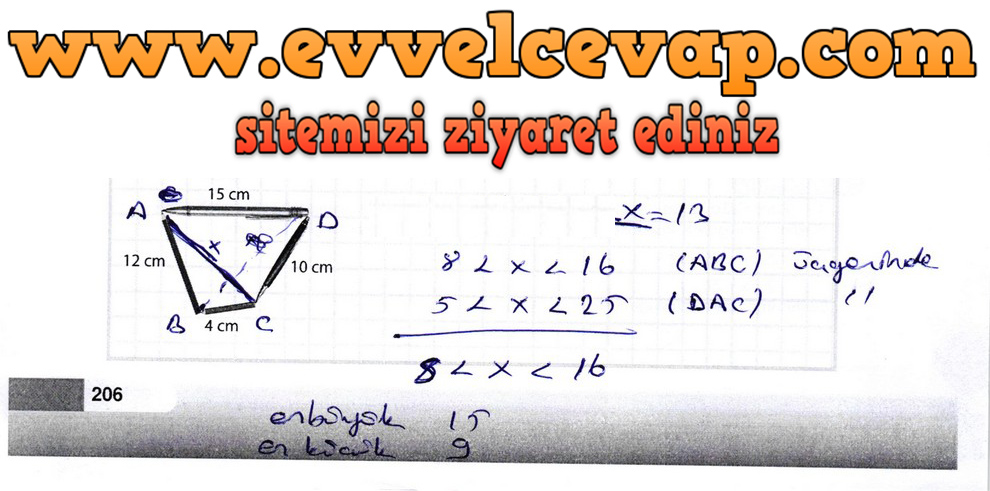 www.evvelcevap.com
sitemizi ziyaret ediniz
15 cm
A D
x = 13
12 cm x 10 cm
8 < x < 16 (ABC) üçgeninde
5 < x < 25 (DAC) "
B 4 cm C
8 < x < 16
206
en büyük 15
en küçük 9